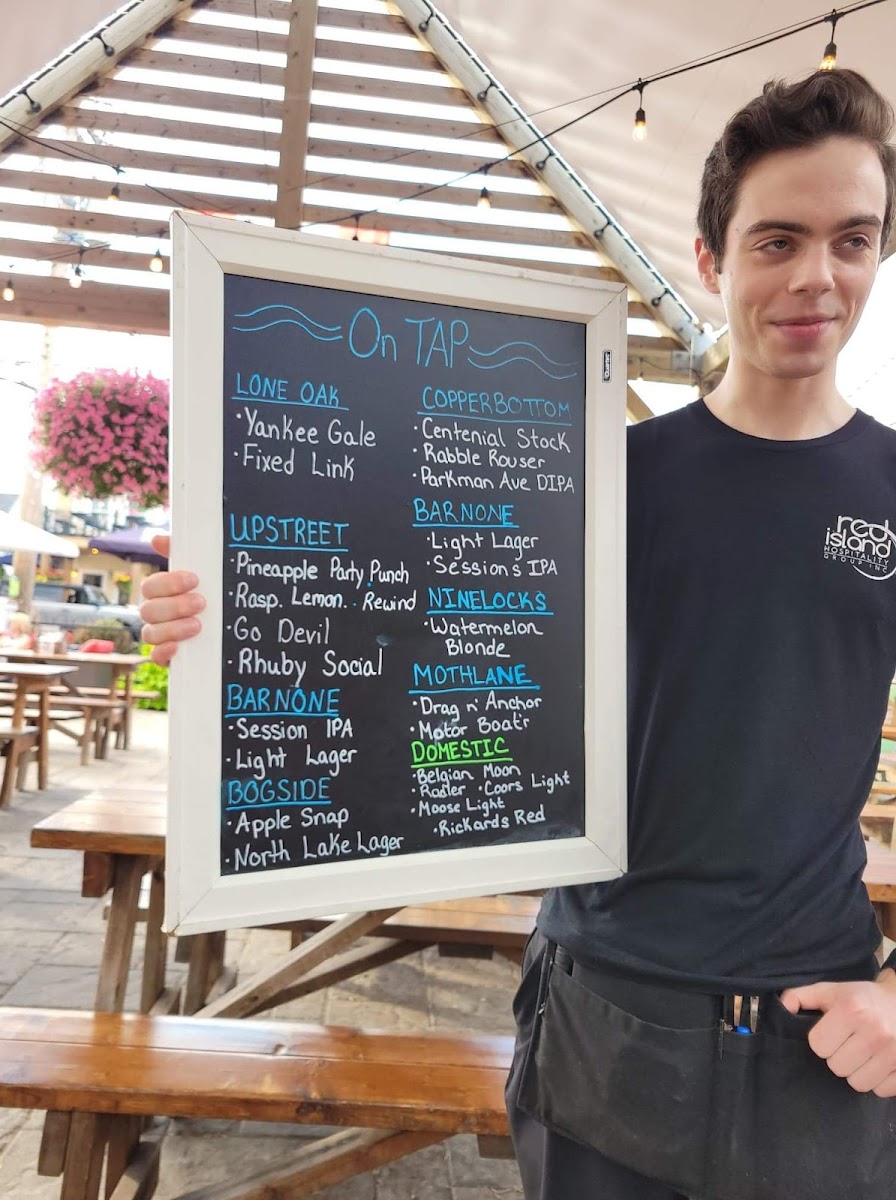 On TAP
LONE OAK
· Yankee Gale
· Fixed Link
UPSTREET
· Pineapple Party Punch
· Rasp. Lemon. Rewind
· Go Devil
· Rhuby Social
BARNONE
· Session IPA
· Light Lager
BOGSIDE
· Apple Snap
· North Lake Lager
COPPERBOTTOM
· Centenial Stock
· Rabble Rouser
· Parkman Ave DIPA
BARNONE
· Light Lager
· Sessions IPA
NINELOCKS
· Watermelon
Blonde
MOTHLANE
· Drag n' Anchor
· Motor Boat'r
DOMESTIC
· Belgian Moon
· Radler · Coors Light
· Moose Light
· Rickards Red
Quartet
red
island
HOSPITALITY
GROUP INC